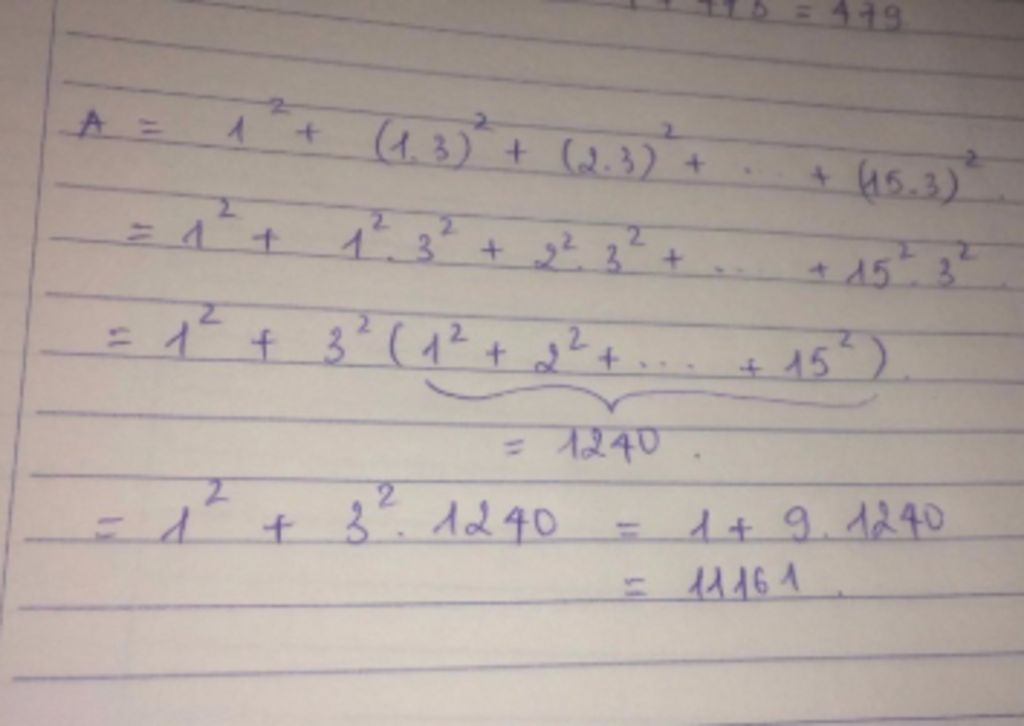 = 479
A = 1² + (1.3)² + (2.3)² + ... + (15.3)².
= 1² + 1².3² + 2².3² + .... + 15².3².
= 1² + 3² (1² + 2² + .... + 15²).
= 1240.
= 1² + 3².1240 = 1 + 9.1240
= 11161.